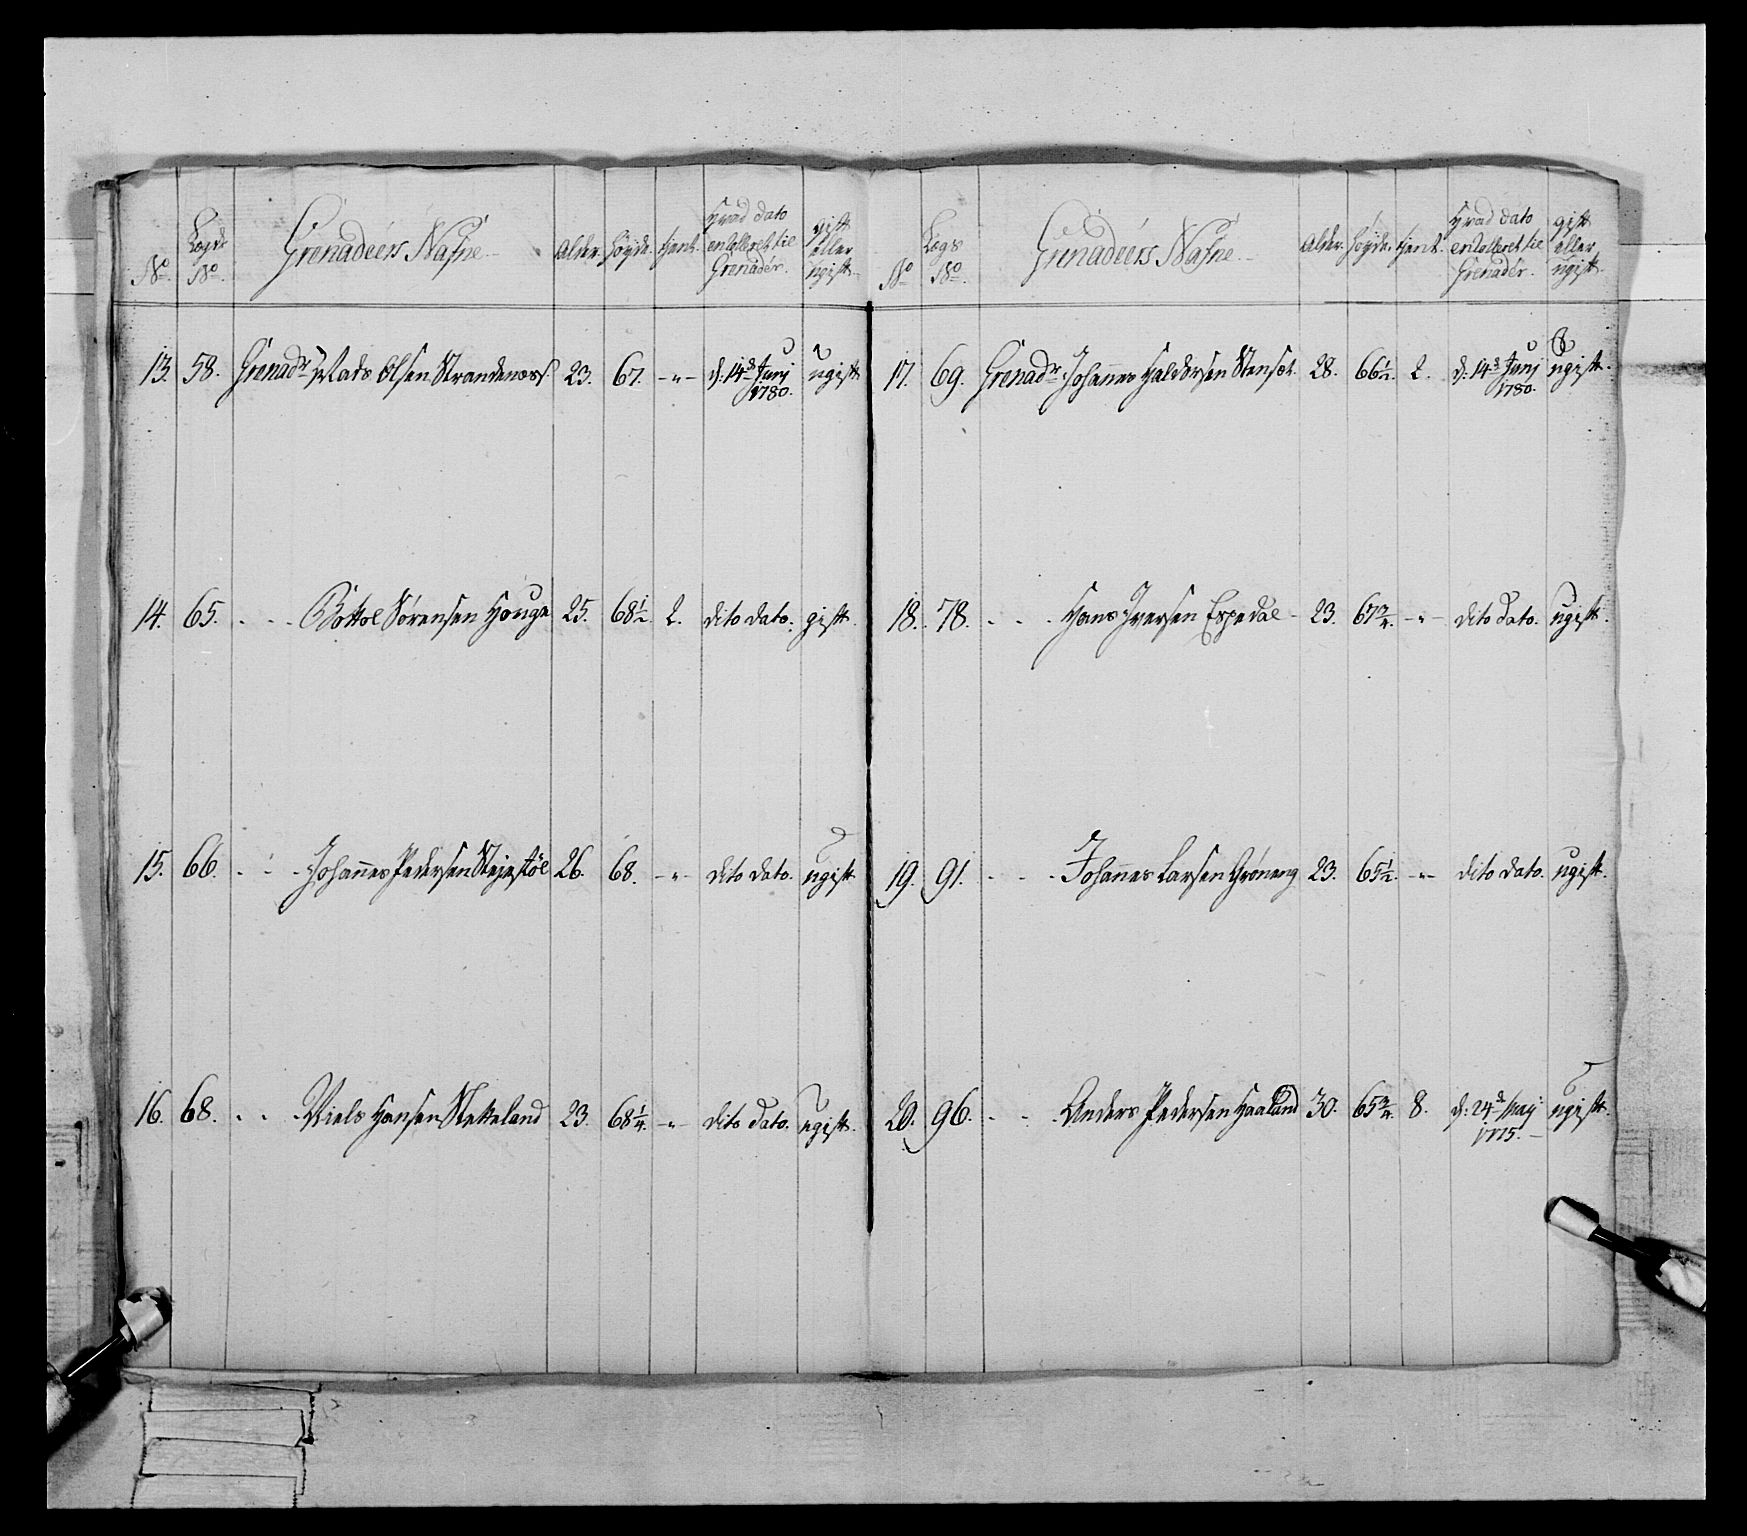 No. Lægds No. Grenadeers Nafne Alder. Høyde. tient. hvad dato enrolleret til Grenadér. gift eller ugift.
13. 58. Grenadr. Mads Olsen Strandenæss. 23. 67. -"- d: 14de Junj 1780. ugift
14. 65. - - - Bottol Sørensen Houga 25. 68½. 2. dito dato. gift
15. 66. - - - Johannes Pedersen 26. 68. -"- dito dato. ugift
16. 68. - - - Niels Hansen 23. 68¼. -"- dito dato. ugift.
No. Lægs No. Grenadeers Nafne. Alder. Høyde. tient. hvad dato enrolleret til Grenadér. gift eller ugift.
17. 69. Grenadr. Johannes Haldorsen 28. 66½. 2. d: 14de Junj 1780. ugift.
18. 78. - - - Hans Iversen Espedal - 23. 67¾. -"- dito dato. ugift.
19. 91. - - - Johannes Larsen Grøneng 23. 65½. -"- dito dato. ugift.
20. 96. - - - Anders Pedersen Haaland 30. 65¾. 8. d: 24de May 1775. - ugift.